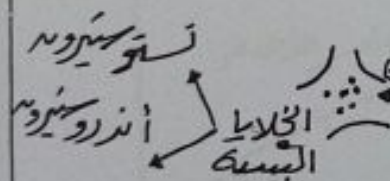 تستوسترون
أندروسترون
الخلايا
البينية